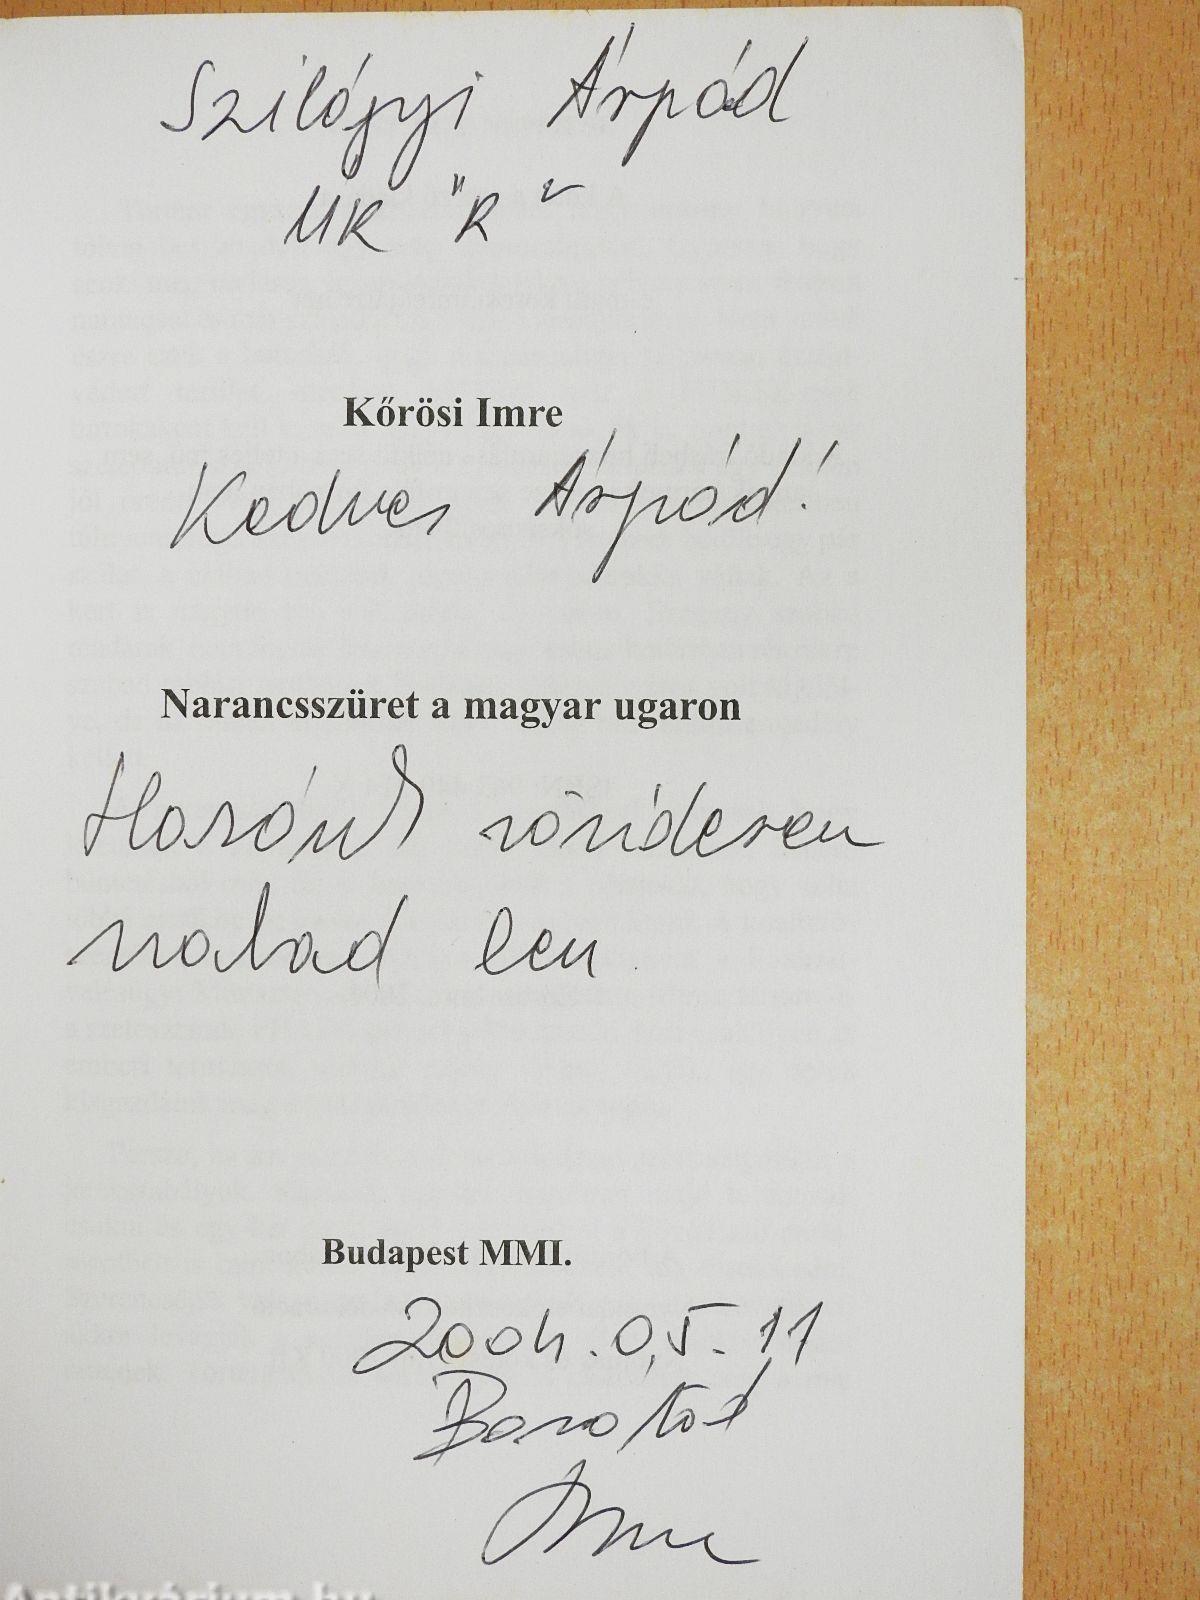 Szilágyi Árpád
UR "R"
Kőrösi Imre
Kedves Árpád!
Narancsszüret a magyar ugaron
Hazánk
szabad len
Budapest MMI.
2004.05.11
Barátod
Imre
Antikvárium.hu